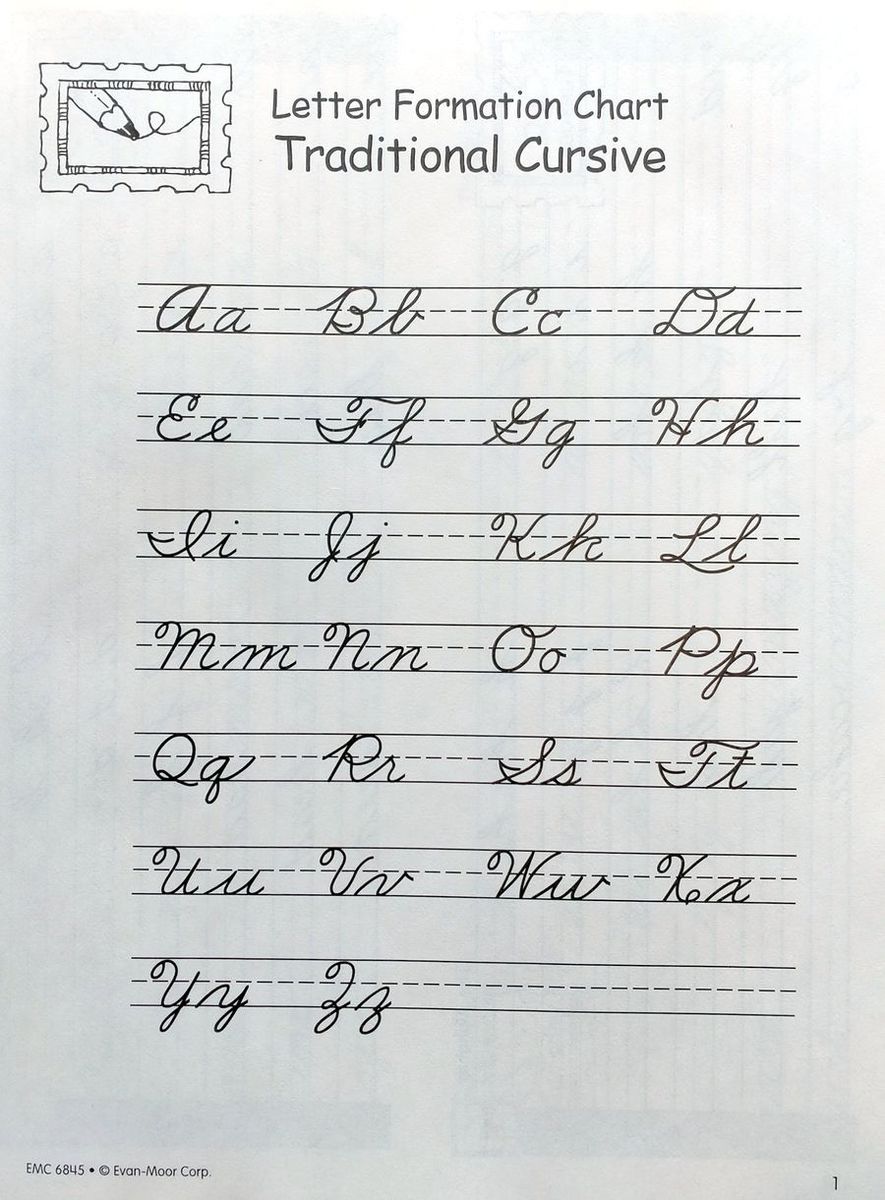 Letter Formation Chart
Traditional Cursive
Aa Bb Cc Dd
Ee Ff Gg Hh
Ii Jj Kk Ll
Mm Nn Oo Pp
Qq Rr Ss Tt
Uu Vv Ww Xx
Yy Zz
EMC 6845 • © Evan-Moor Corp.
1